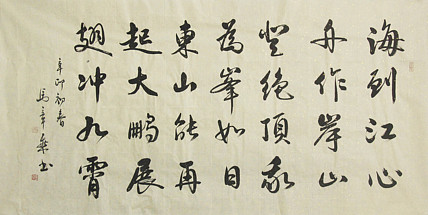 海到江心
舟作岸山
登绝顶我
為峯如日
東山能再
起大鵬展
翅冲九霄
辛卯初春
馬章书